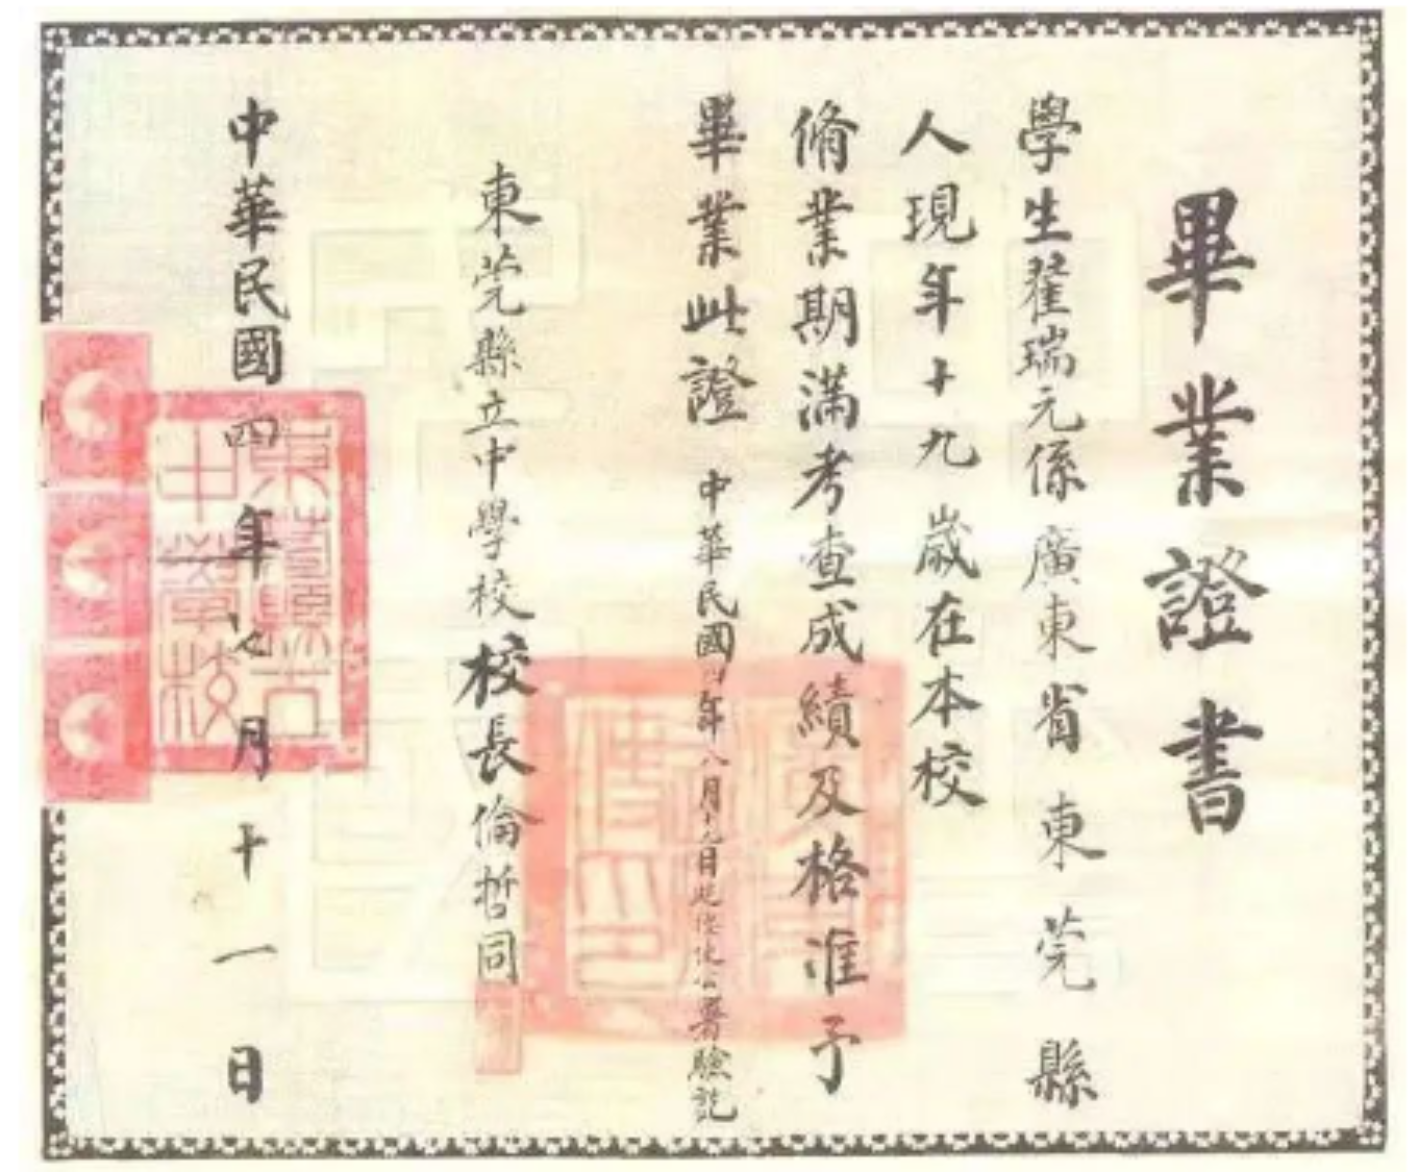 畢業證書
學生翟瑞元係廣東省東莞縣
人現年十九歲在本校
脩業期滿考查成績及格准予
畢業此證
中華民國四年八月十九日巡按使公署驗訖
東莞縣立中學校校長倫哲同
中華民國四年七月十一日